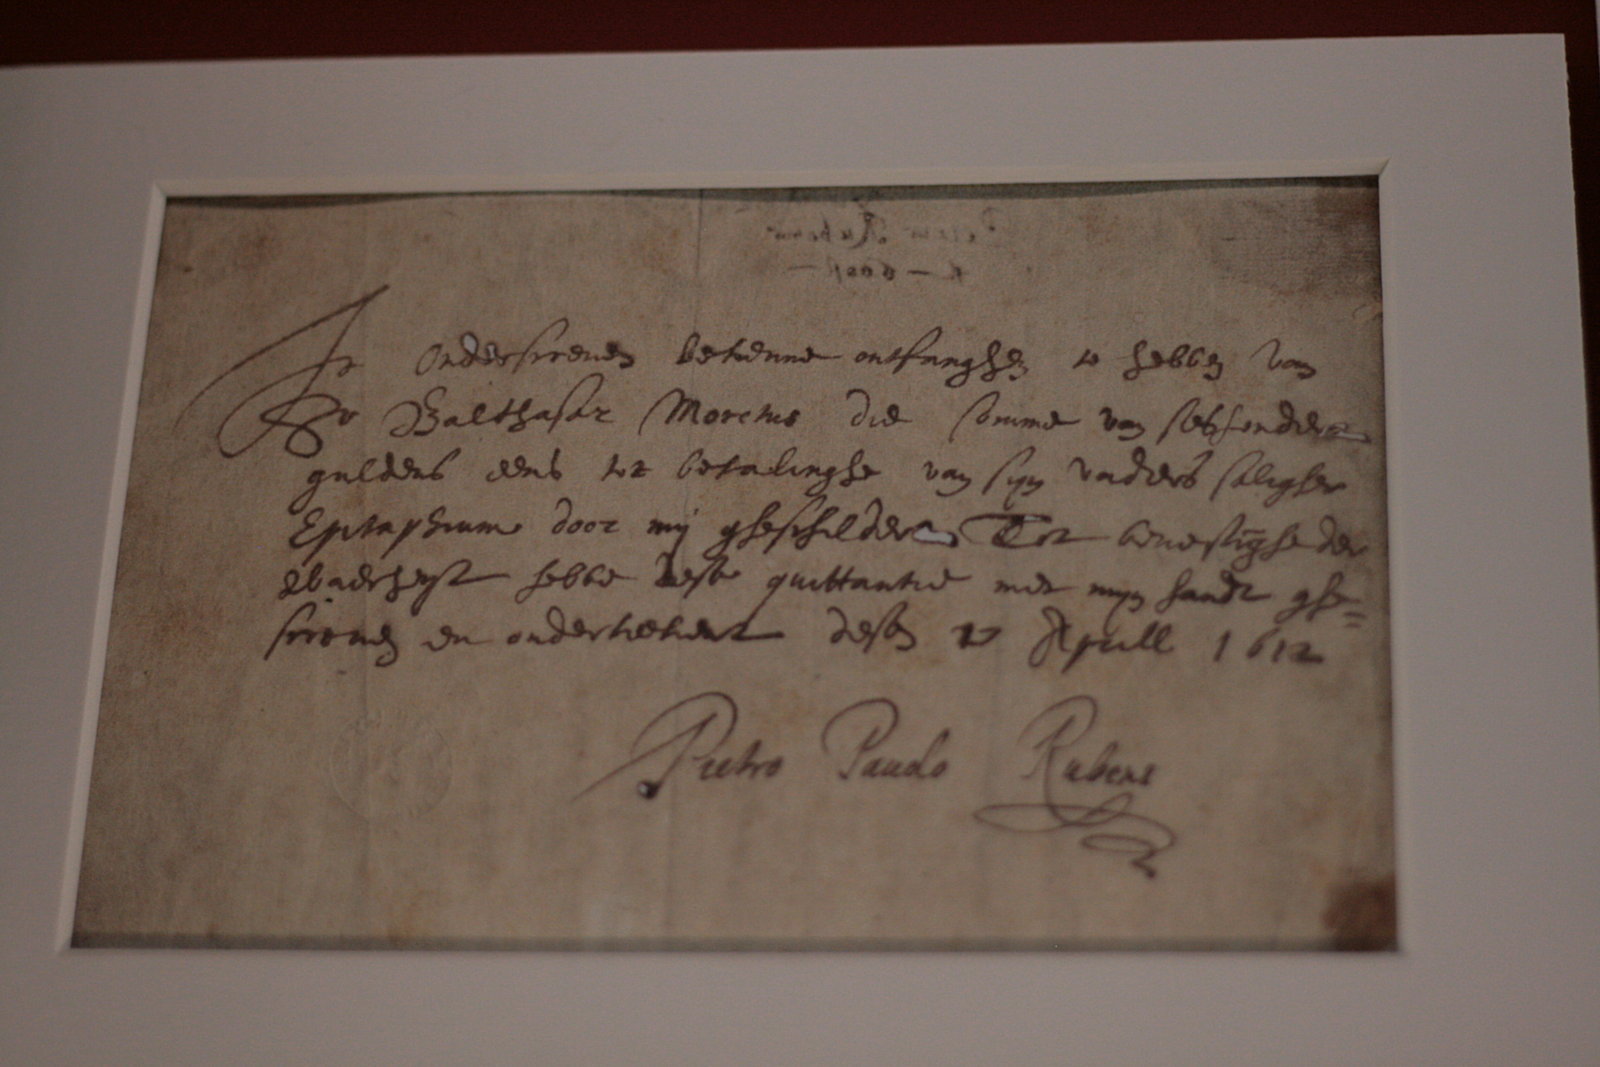 Ic Onderscreven bekenne ontfanghen te hebben van
Sr Balthasar Moretus die somme van seshondert
guldens eens tot betalinghe van syn vaders saligher
Epitaphium door mij gheschildert Tot bevestighe der
Waerheyt hebbe dese quittantie met myn handt ghe=
screven en onderteekent desen April 1612
Pietro Pauolo Rubens